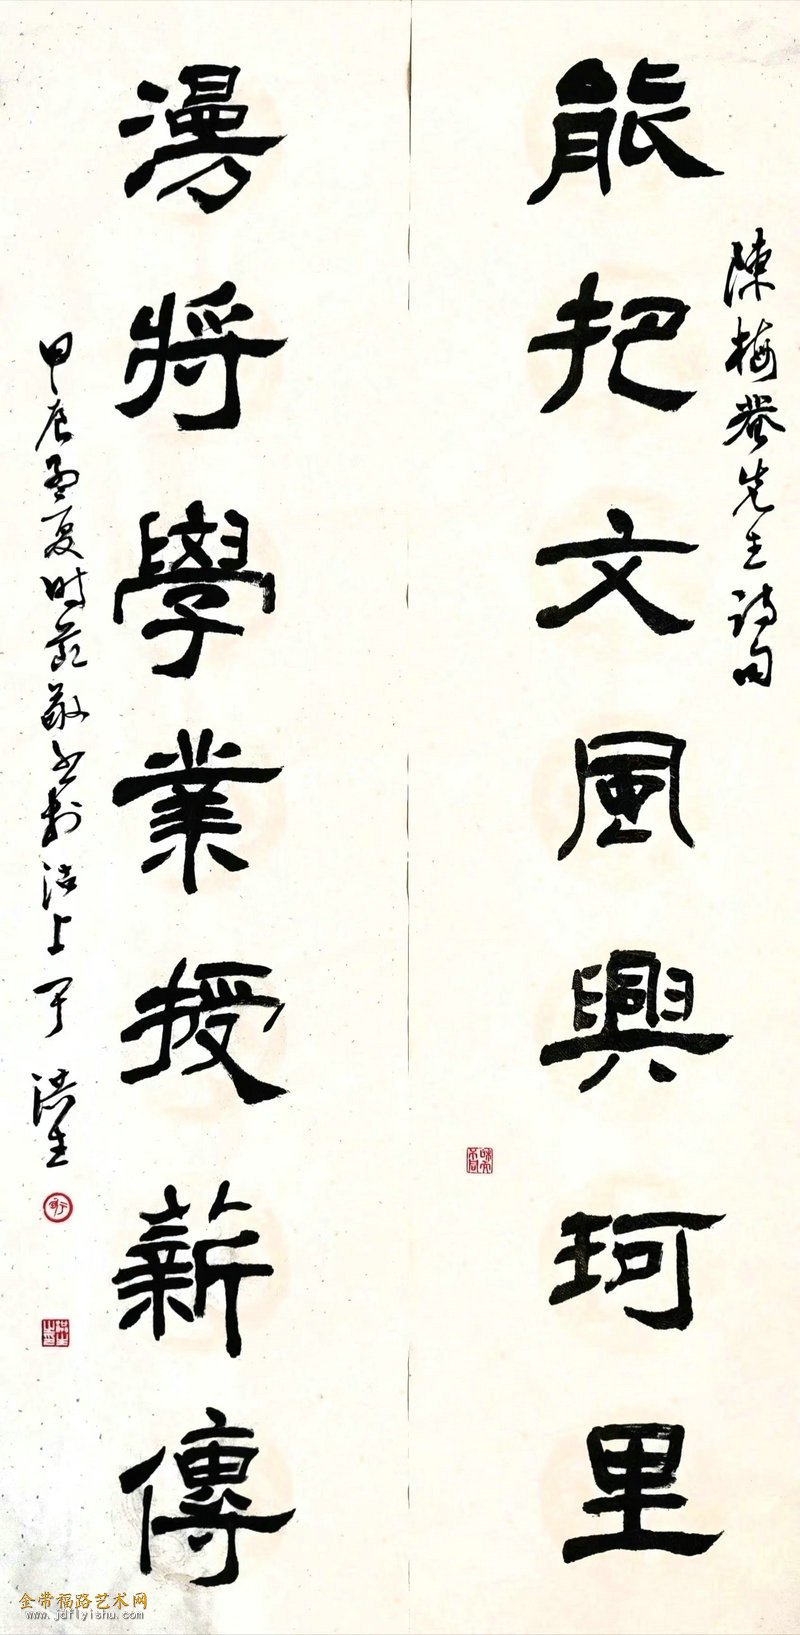 陳梅菴先生诗句
能把文風興珂里
漫將學業授薪傳
甲辰孟夏时敬书於沽上 于洪生
金带福路艺术网
www.jdflyishu.com